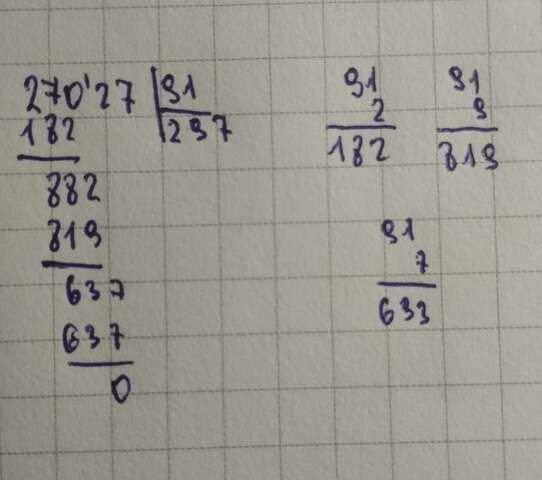 270'27 91
182 297
882
819
637
637
0
91
2
182
91
9
819
91
7
633